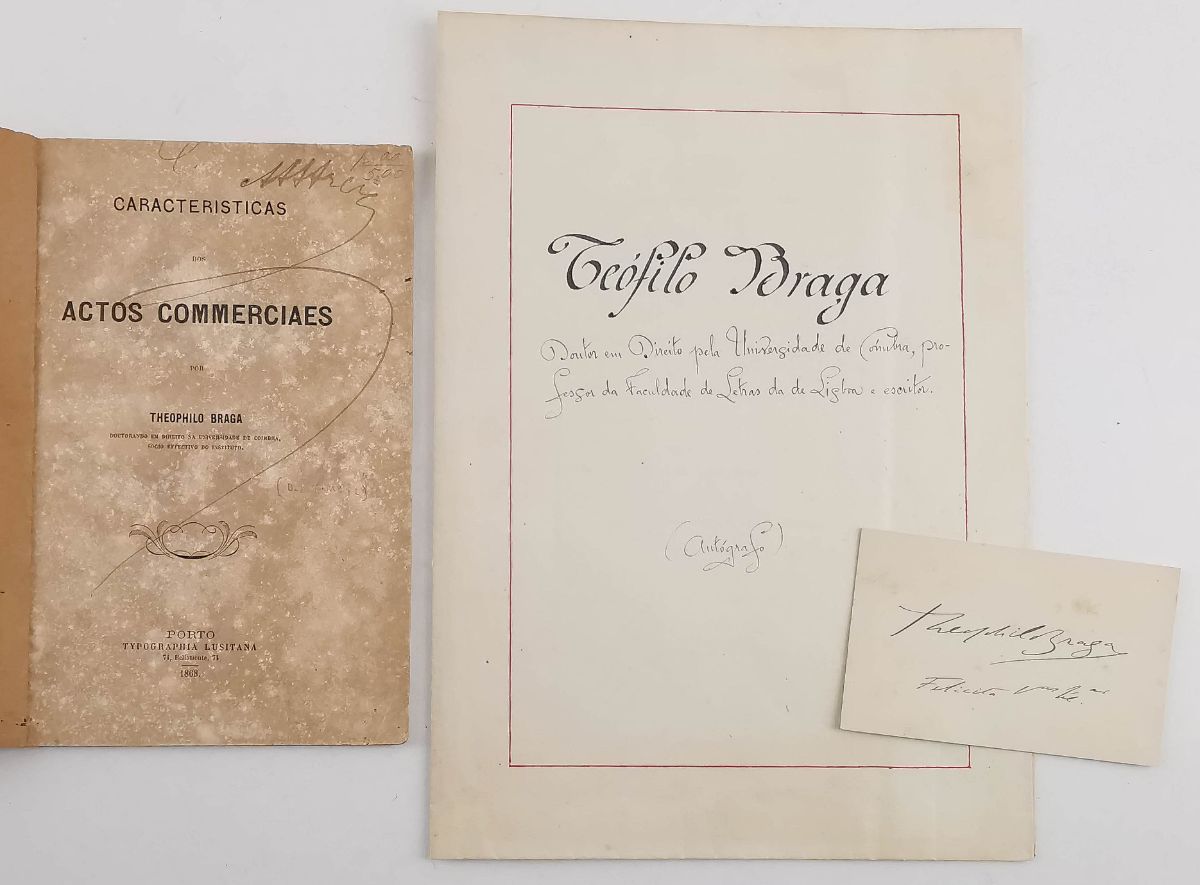 CARACTERISTICAS
DOS
ACTOS COMMERCIAES
POR
THEOPHILO BRAGA
DOUTORANDO EM DIREITO NA UNIVERSIDADE DE COIMBRA,
SOCIO EFFECTIVO DO INSTITUTO.
PORTO
TYPOGRAPHIA LUSITANA
74, Bellomonte, 74
1868.
Teófilo Braga
Doutor em Direito pela Universidade de Coimbra, pro-
fessor da Faculdade de Letras da de Lisboa e escritor.
(Autógrafo)
Theophilo Braga
Felicita